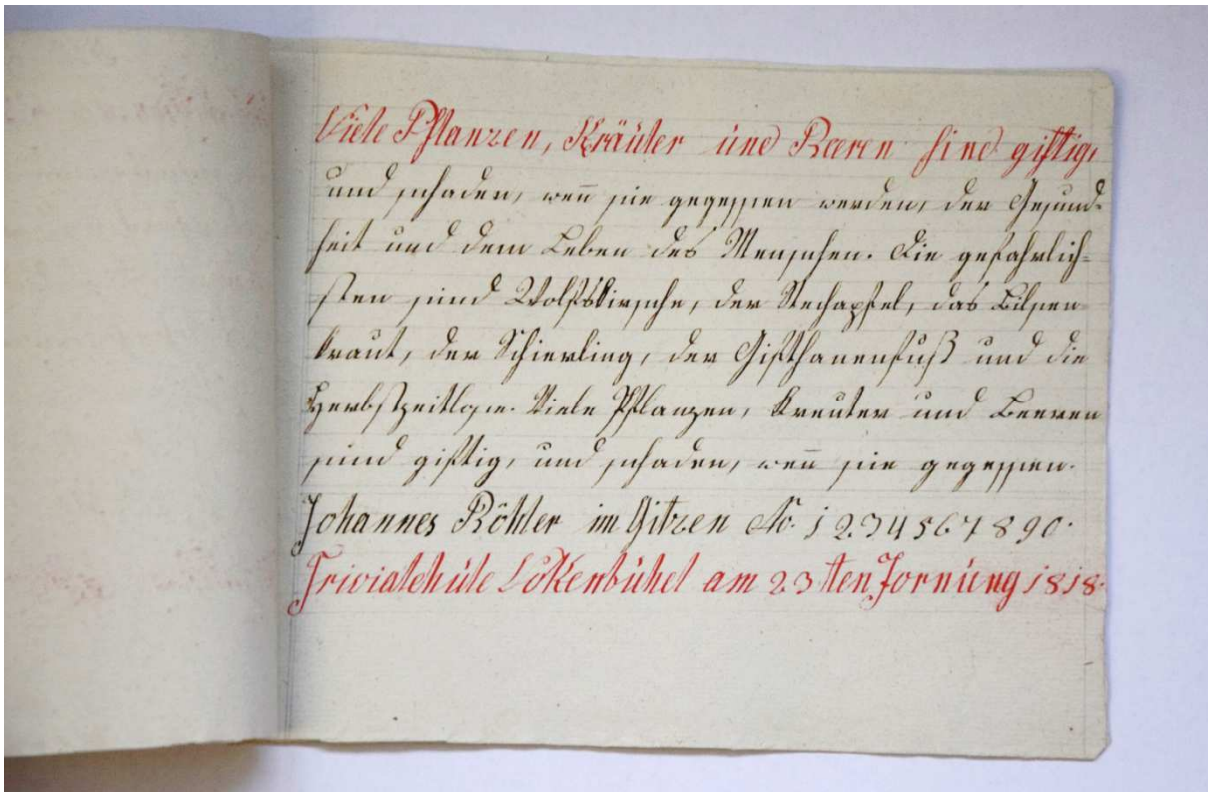 Viele Pflanzen, Kräuter und Beeren sind giftig,
und schaden, wen̅ sie gegessen werden, der Gesund-
heit und dem Leben des Menschen. Die gefahrlich-
sten sind Wolfskirsche, der Stechapfel, das Bilsen
kraut, der Schierling, der Gifthanenfuß und die
Herbstzeitlose. Viele Pflanzen, Kreuter und Beeren
sind giftig, und schaden, wen̅ sie gegessen.
Johannes Röhler im Gitzen No. 1234567890.
Trivialschule Lokenbühel am 23ten Jornung 1818.